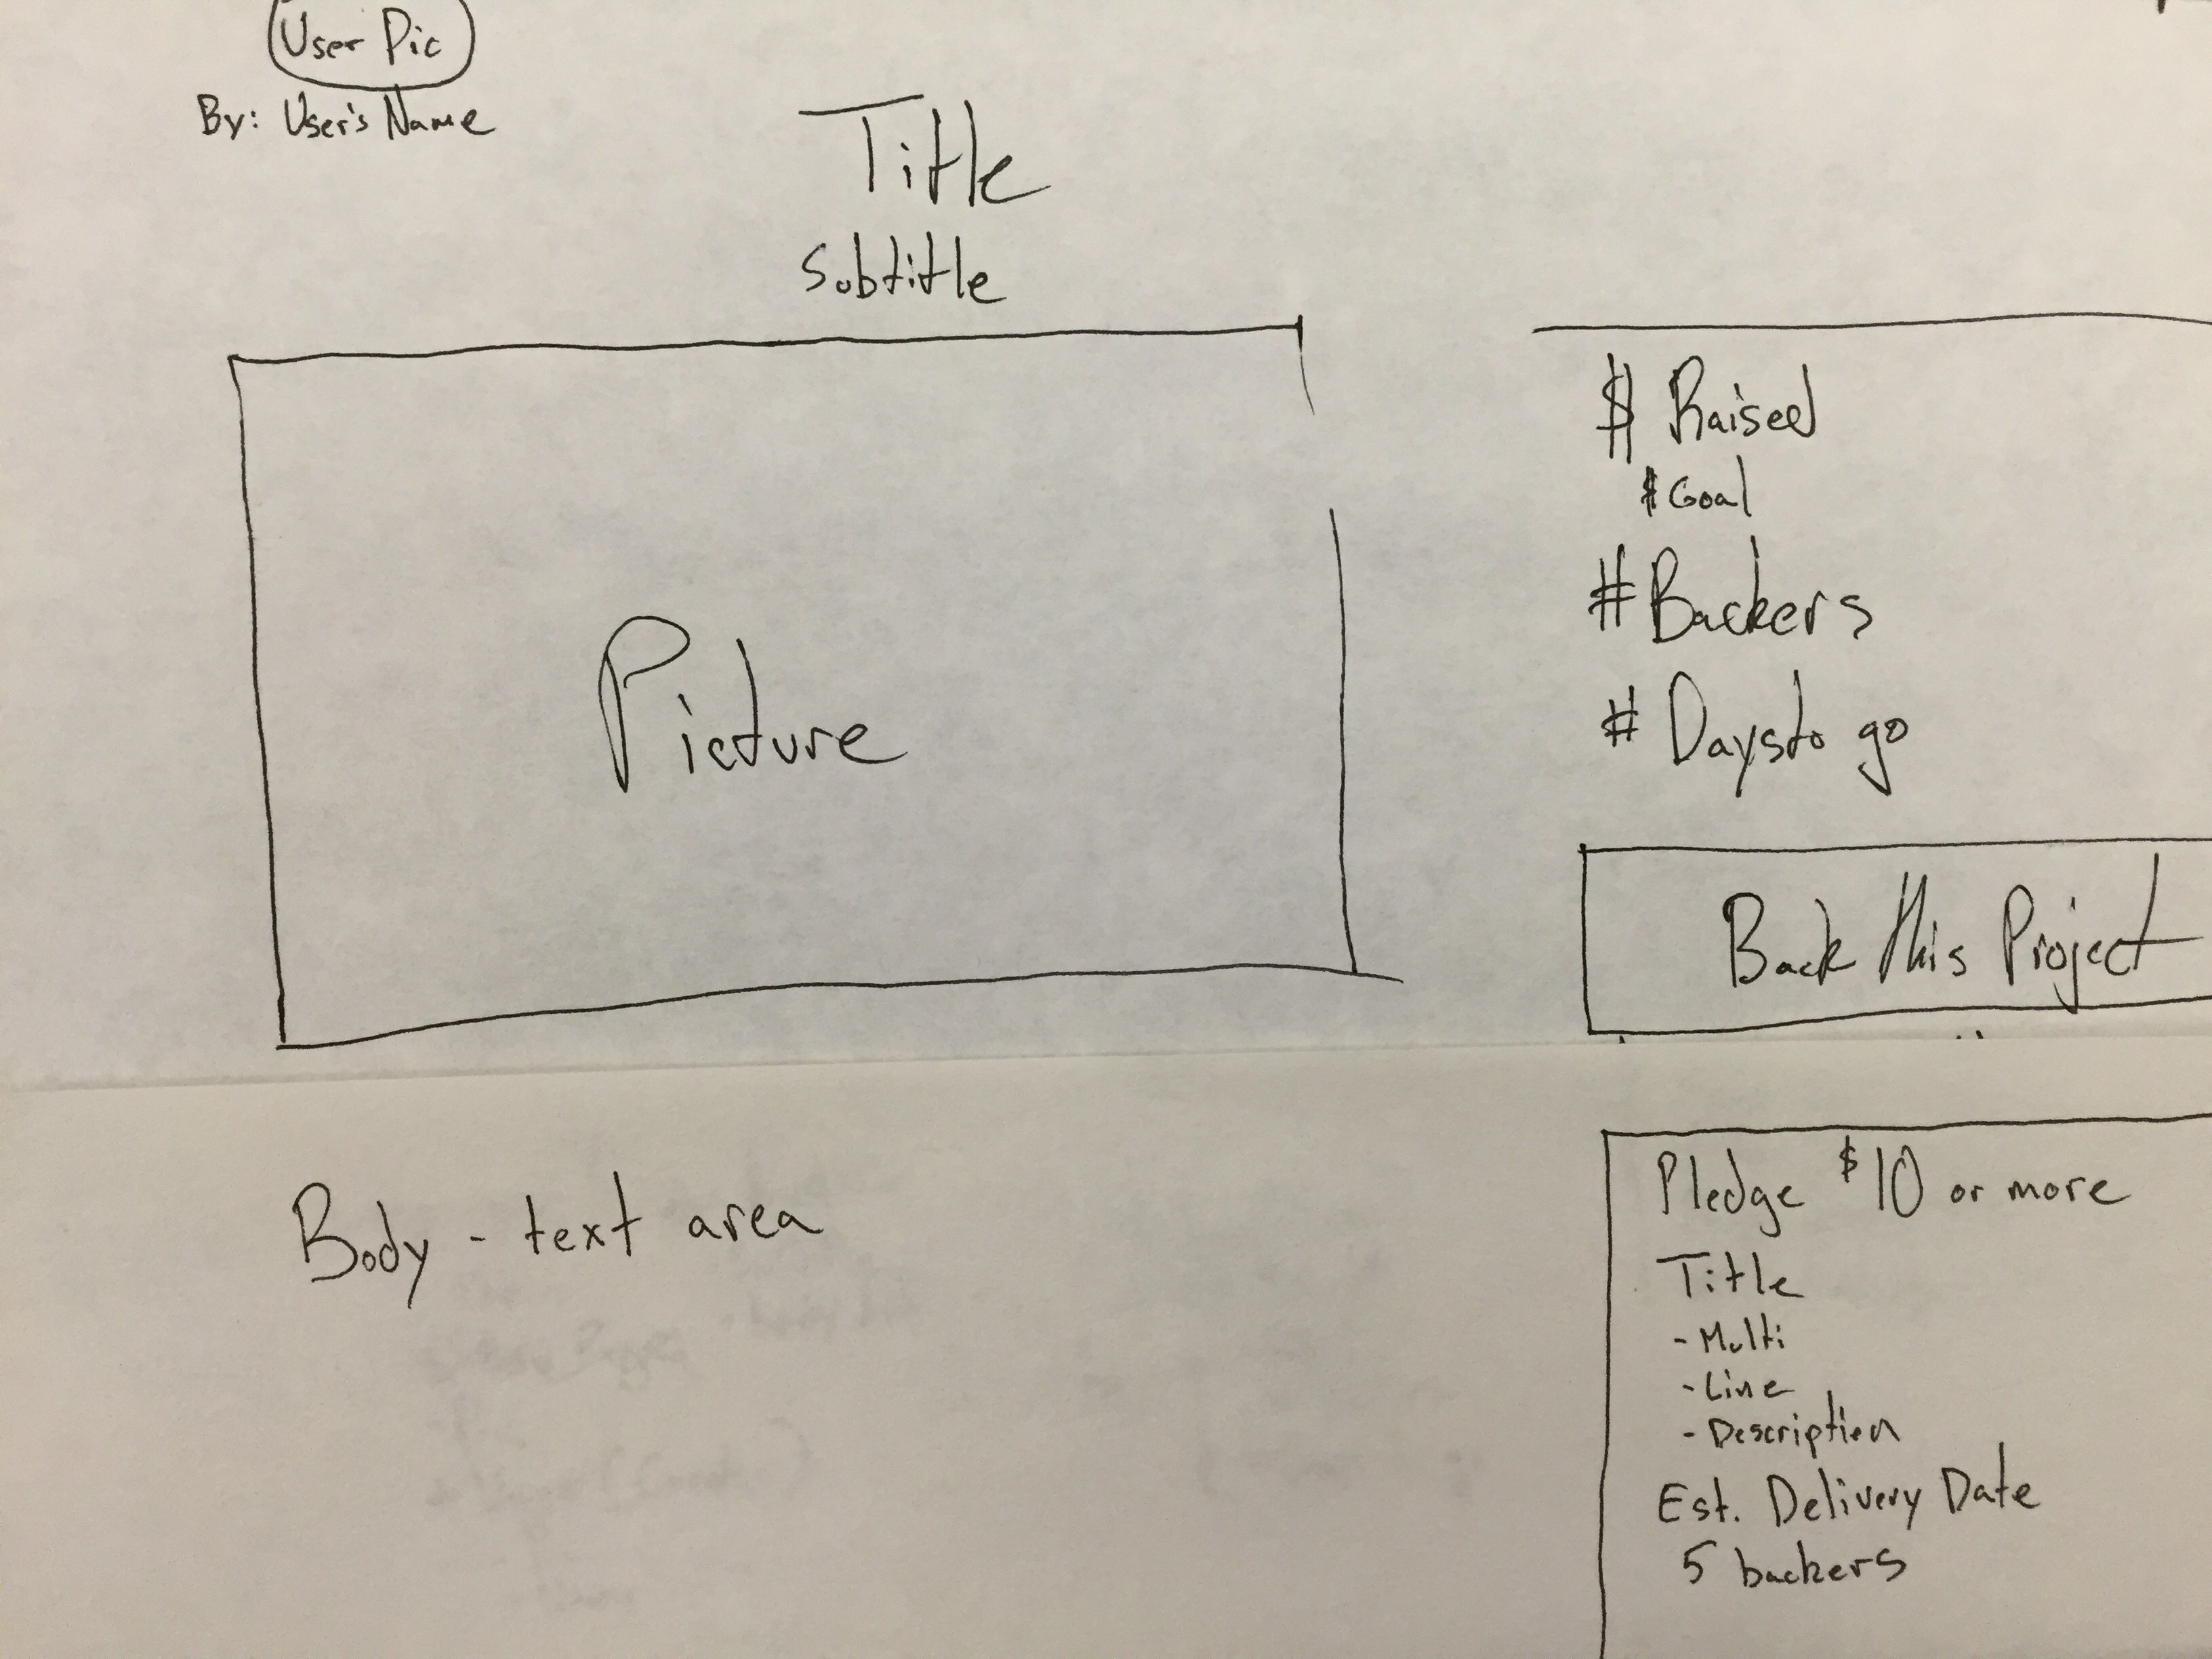 User Pic
By: User's Name
Title
Subtitle
Picture
$ Raised
$ Goal
# Backers
# Days to go
Back this Project
Body - text area
Pledge $10 or more
Title
- Multi
- Line
- Description
Est. Delivery Date
5 backers